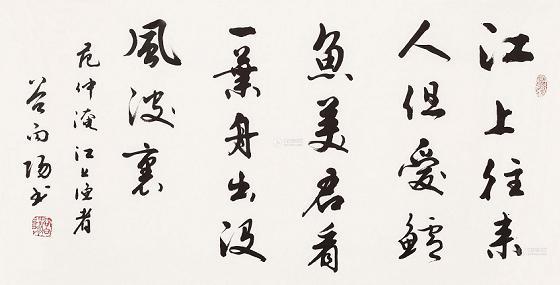 江上往来
人但爱鲈
魚美君看
一葉舟出没
風波裏
范仲淹江上渔者
谷雨阳书